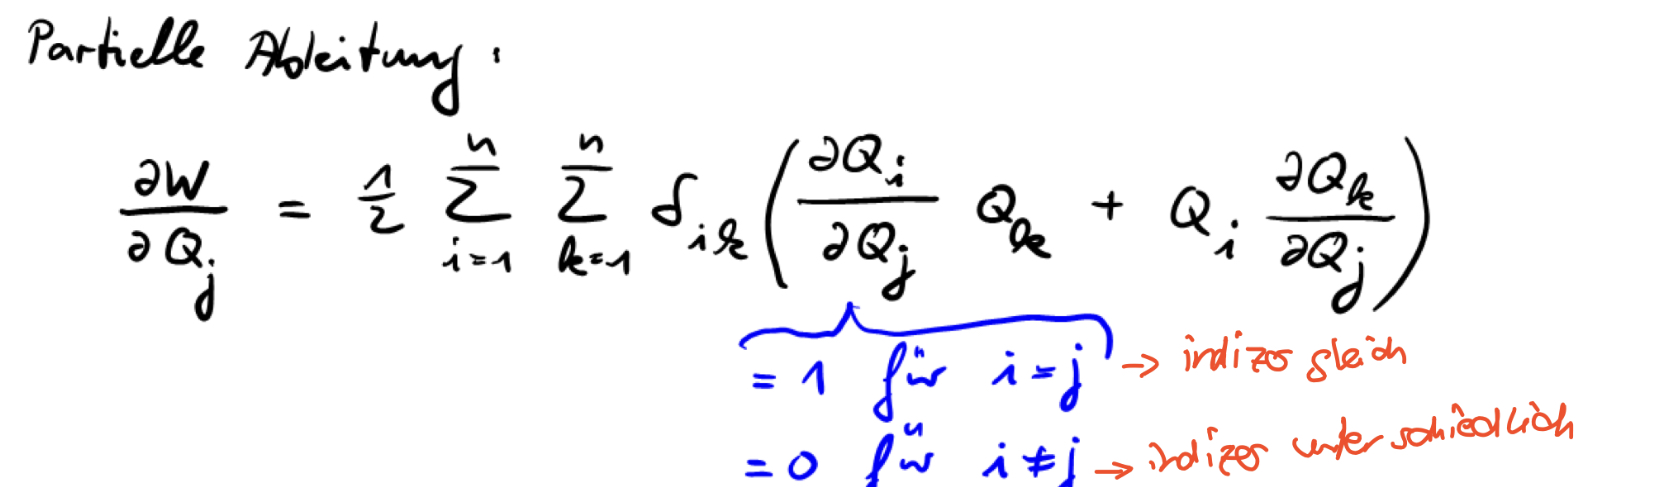 Partielle Ableitung:
∂W/∂Q_j = 1/2 ∑_{i=1}^{n} ∑_{k=1}^{n} δ_{ik} (∂Q_i/∂Q_j Q_k + Q_i ∂Q_k/∂Q_j)
= 1 für i = j → indizes gleich
= 0 für i ≠ j → indizes unterschiedlich